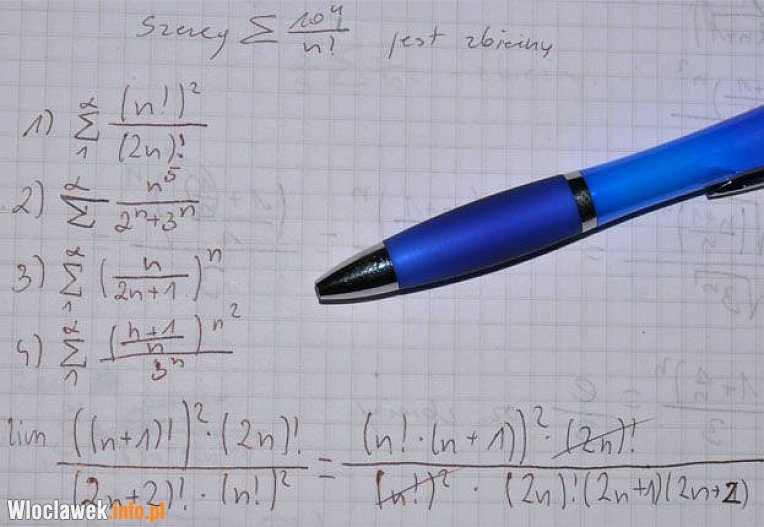 Szereg ∑ 10^4/n! jest zbieżny
1) ∑_1^∞ (n!)^2/(2n)!
2) ∑ n^5/(2^n+3^n)
3) ∑_1^∞ (n/(2n+1))^n
4) ∑_1^∞ ((n+1)/n)^{n^2}/3^n
lim ((n+1)!)^2·(2n)!/((2n+2)!·(n!)^2) = (n!·(n+1))^2·(2n)!/((n!)^2·(2n)!(2n+1)(2n+2))
Wloclawek.info.pl